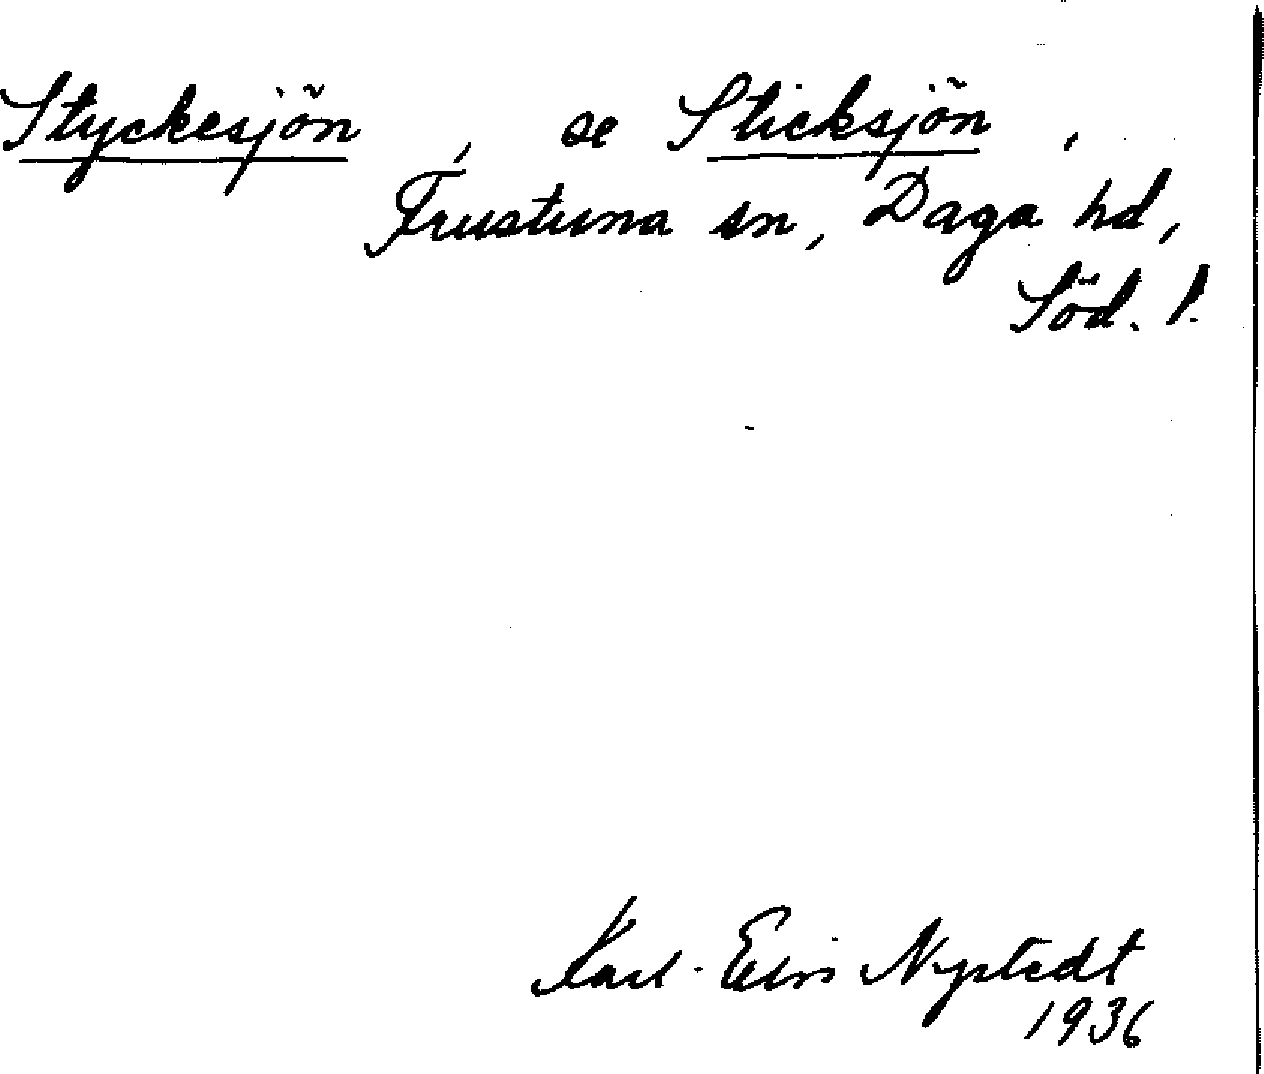 Styckesjön, se Sticksjön,
Frustuna sn, Daga hd,
Söd. l.
Karl-Elvis Nystedt
1936